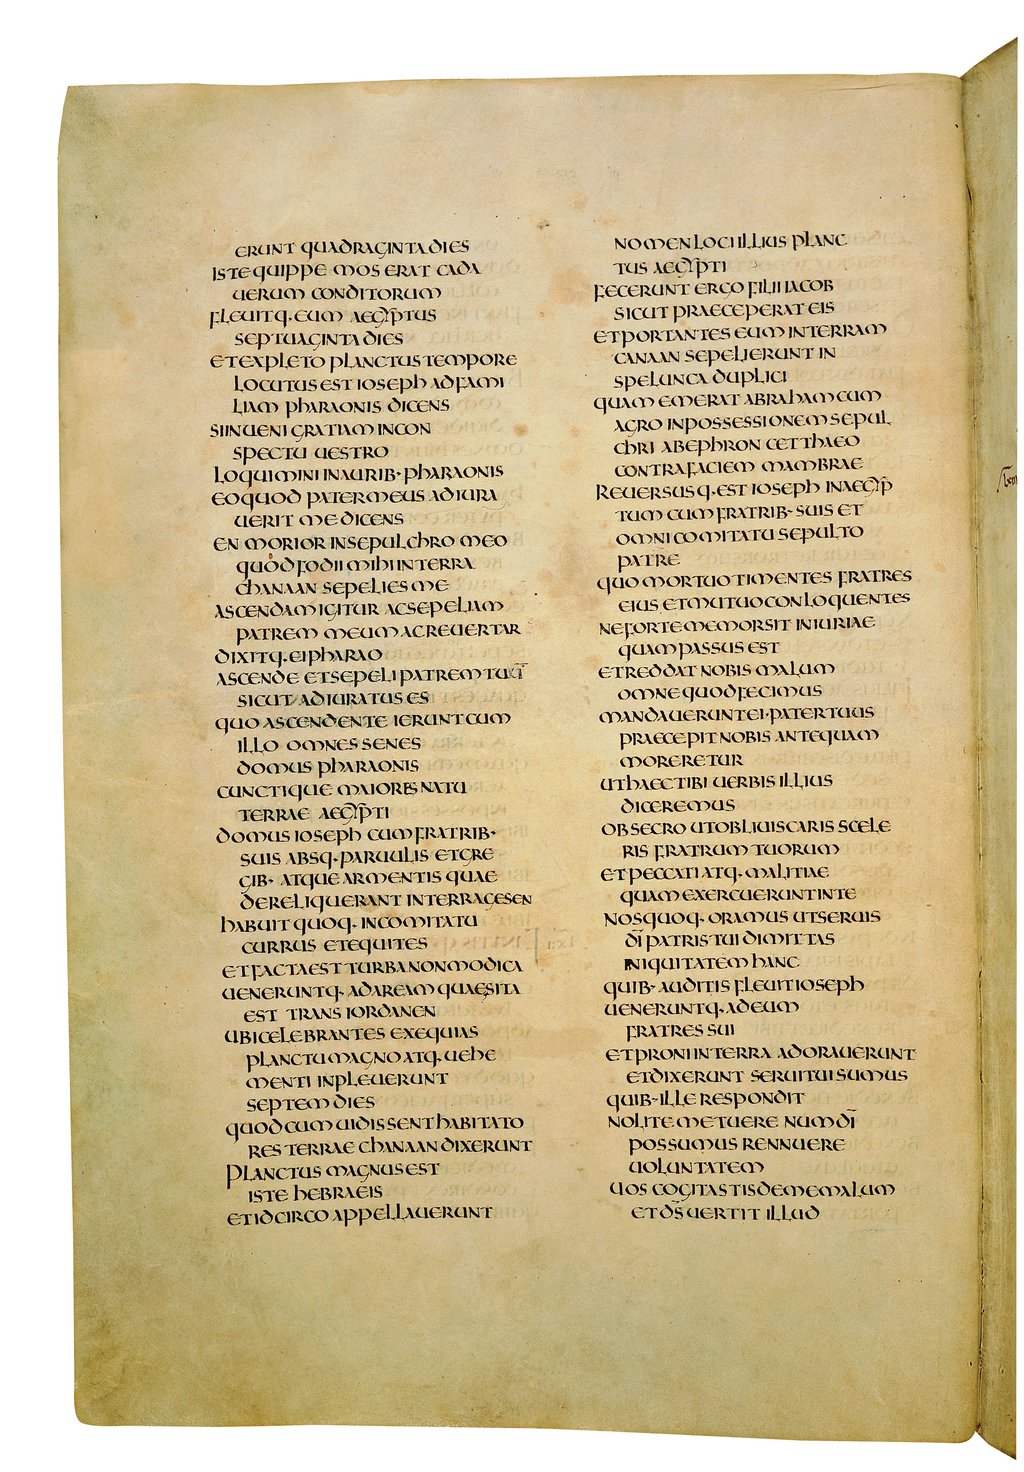 ERUNT QUADRAGINTA DIES
ISTE QUIPPE MOS ERAT CADA
UERUM CONDITORUM
FLEUITQ· EUM AEGYPTUS
SEPTUAGINTA DIES
ET EXPLETO PLANCTUS TEMPORE
LOCUTUS EST IOSEPH AD FAMI
LIAM PHARAONIS DICENS
SI INUENI GRATIAM IN CON
SPECTU UESTRO
LOQUIMINI IN AURIB· PHARAONIS
EO QUOD PATER MEUS ADIURA
UERIT ME DICENS
EN MORIOR IN SEPULCHRO MEO
QUOD FODI MIHI IN TERRA
CHANAAN SEPELIES ME
ASCENDAM IGITUR AC SEPELIAM
PATREM MEUM AC REUERTAR
DIXITQ· EI PHARAO
ASCENDE ET SEPELI PATREM TUŪ
SICUT ADIURATUS ES
QUO ASCENDENTE IERUNT CUM
ILLO OMNES SENES
DOMUS PHARAONIS
CUNCTIQUE MAIORES NATU
TERRAE AEGYPTI
DOMUS IOSEPH CUM FRATRIB·
SUIS ABSQ· PARUULIS ET GRE
GIB· ATQUE ARMENTIS QUAE
DERELIQUERANT IN TERRA GESEN
HABUIT QUOQ· IN COMITATU
CURRUS ET EQUITES
ET FACTA EST TURBA NON MODICA
UENERUNTQ· AD AREAM QUAE SITA
EST TRANS IORDANEN
UBI CELEBRANTES EXEQUIAS
PLANCTU MAGNO ATQ· UEHE
MENTI INPLEUERUNT
SEPTEM DIES
QUOD CUM UIDISSENT HABITATO
RES TERRAE CHANAAN DIXERUNT
PLANCTUS MAGNUS EST
ISTE HEBRAEIS
ET IDCIRCO APPELLAUERUNT
NOMEN LOCI ILLIUS PLANC
TUS AEGYPTI
FECERUNT ERGO FILII IACOB
SICUT PRAECEPERAT EIS
ET PORTANTES EUM IN TERRAM
CANAAN SEPELIERUNT IN
SPELUNCA DUPLICI
QUAM EMERAT ABRAHAM CUM
AGRO IN POSSESSIONEM SEPUL
CHRI AB EPHRON CETTHAEO
CONTRA FACIEM MAMBRAE
REUERSUSQ· EST IOSEPH IN AEGYP
TUM CUM FRATRIB· SUIS ET
OMNI COMITATU SEPULTO
PATRE
QUO MORTUO TIMENTES FRATRES
EIUS ET MUTUO CONLOQUENTES
NE FORTE MEMOR SIT INIURIAE
QUAM PASSUS EST
ET REDDAT NOBIS MALUM
OMNE QUOD FECIMUS
MANDAUERUNT EI· PATER TUUS
PRAECEPIT NOBIS ANTEQUAM
MORERETUR
UT HAEC TIBI UERBIS ILLIUS
DICEREMUS
OBSECRO UT OBLIUISCARIS SCELE
RIS FRATRUM TUORUM
ET PECCATI ATQ· MALITIAE
QUAM EXERCUERUNT IN TE
NOS QUOQ· ORAMUS UT SERUIS
DĪ PATRIS TUI DIMITTAS
INIQUITATEM HANC
QUIB· AUDITIS FLEUIT IOSEPH
UENERUNTQ· AD EUM
FRATRES SUI
ET PRONI IN TERRA ADORAUERUNT
ET DIXERUNT SERUI TUI SUMUS
QUIB· ILLE RESPONDIT
NOLITE METUERE NUM DĪ
POSSUMUS RENNUERE
UOLUNTATEM
UOS COGITASTIS DE ME MALUM
ET D̄S UERTIT ILLUD